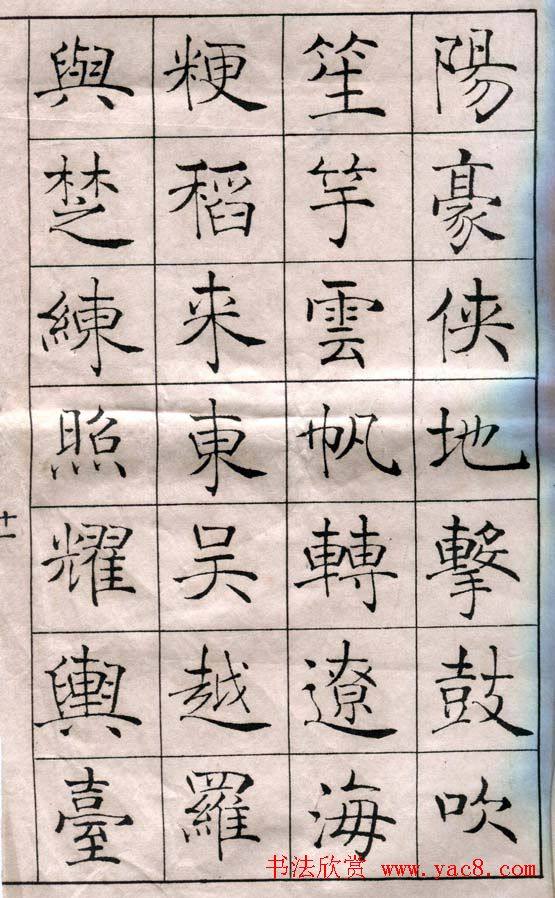 陽豪俠地擊鼓吹
笙竽雲帆轉遼海
粳稻来東吴越羅
與楚練照耀輿臺
十一
书法欣赏 www.yac8.com